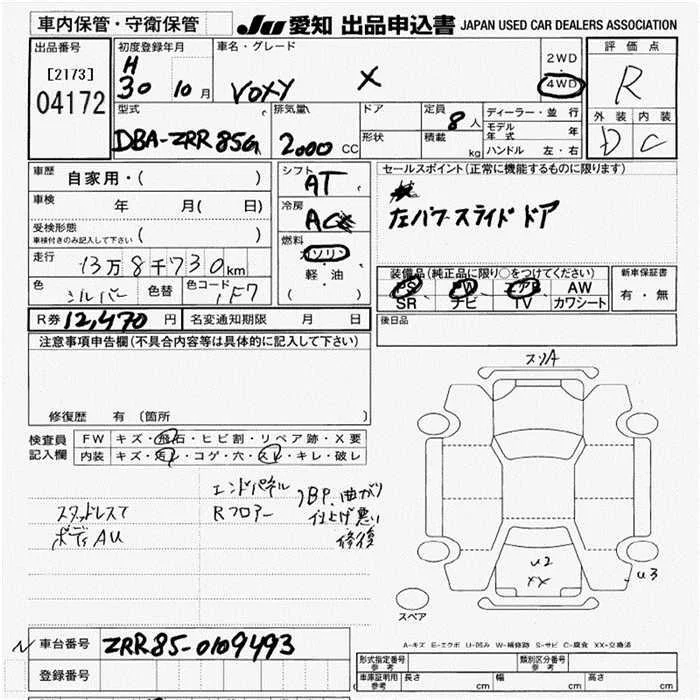 車内保管・守衛保管
JU 愛知 出品申込書 JAPAN USED CAR DEALERS ASSOCIATION
出品番号
[2173]
04172
初度登録年月
H 30 10 月
車名・グレード
VOXY X
2WD
4WD
評価点
R
外装 内装
D C
型式
DBA-ZRR85G
排気量
2000 CC
ドア
形状
定員
8 人
積載
kg
ディーラー・並行
モデル年式 年
ハンドル 左・右
車歴 自家用・( )
車検 年 月( 日)
受検形態
車検付きのみ記入して下さい ( )
走行 13万8千730km
色 シルバー 色替 色コード 1F7
シフト
AT
冷房
AC
燃料
ガソリン
軽・油
( )
セールスポイント(正常に機能するものに限ります)
左パワースライドドア
装備品(純正品に限り○をつけてください)
PS PW エアB AW
SR ナビ TV カワシート
新車保証書
有・無
R券 12,470 円 名変通知期限 月 日
後日品
注意事項申告欄(不具合内容等は具体的に記入して下さい)
修復歴 有(箇所 )
検査員記入欄
FW キズ・飛石・ヒビ割・リペア跡・X要
内装 キズ・汚レ・コゲ・穴・スレ・キレ・破レ
スタッドレスT
ボディAU
エンドパネル
Rフロアー
BP.曲がり
仕上げ悪い
修復
スソA
U2
XX
U3
スペア
A-キズ E-エクボ U-凹み W-補修跡 S-サビ C-腐食 XX-交換済
車台番号 ZRR85-0109493
登録番号
形式指定番号 参考
類別区分番号 参考
車庫証明用 参考 長さ cm 幅 cm 高さ cm